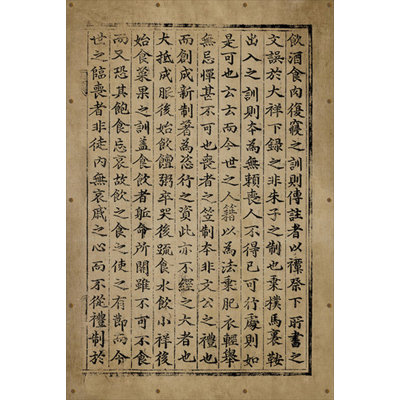 飲酒食肉復寢之訓則傳註者以禫祭下所書之
文誤於大祥下録之非朱子之制也乘樸馬裹鞍
出入之訓則本為無賴喪人不得已可行處則如
是可也云云而今世之人籍以為法乘肥衣輕舉
無忌憚甚不可也喪者之笠制本非文公之禮也
而創成新制著為恣行之資此亦不經之大者也
大抵成服後始飮饘粥卒哭後䟽食水飮小祥後
始食菜果之訓盖食飮者軀命所関雖不可不食
而又恐其飽食忘哀故飮之食之使之有莭而今
世之臨喪者非徒內無哀戚之心而不從禮制於